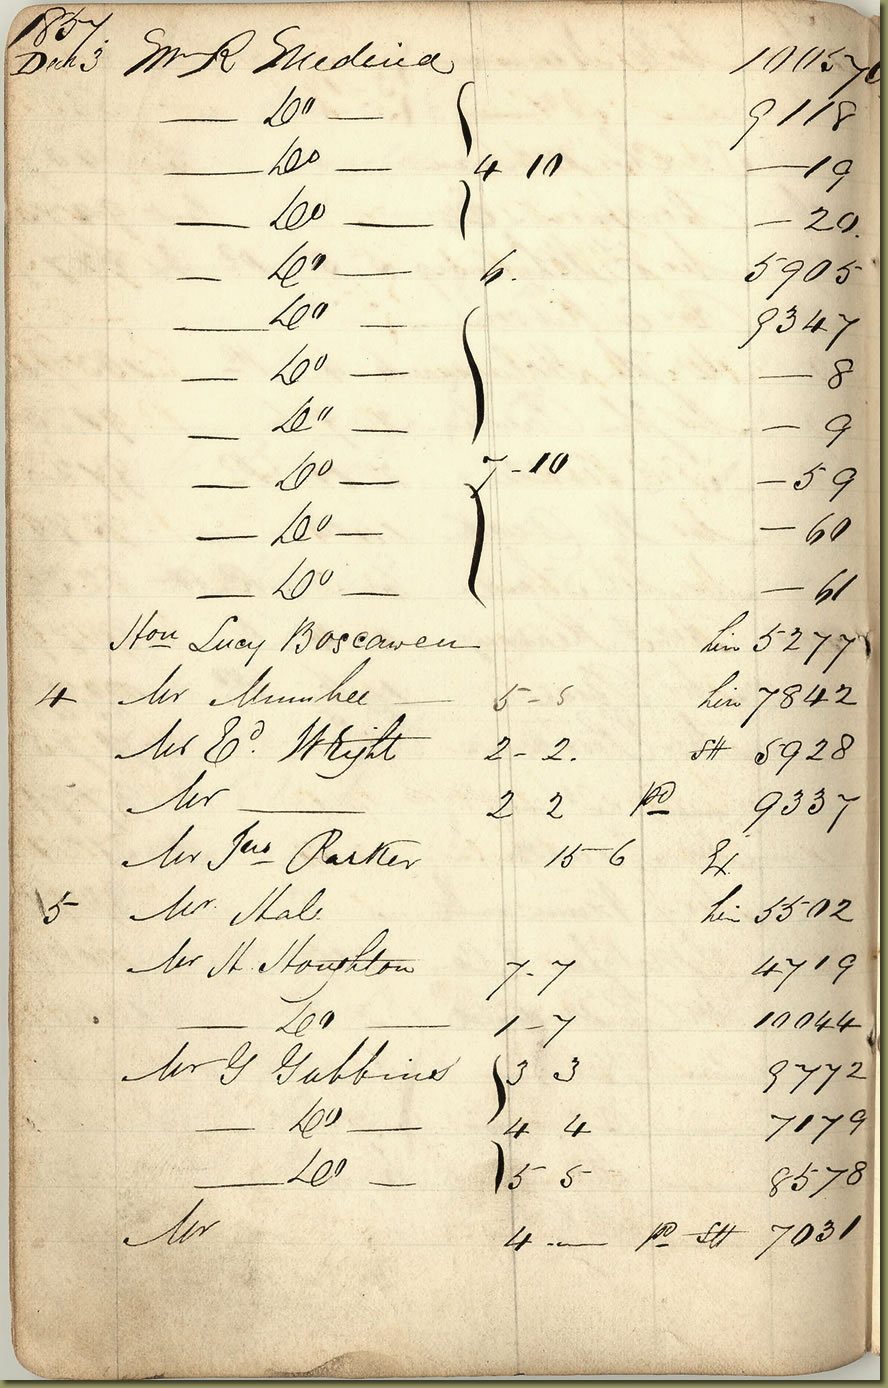 1857.
Decr 3 Mr R Medina 10057
— Do — 9118
— Do — 4 10 — 19
— Do — — 20.
— Do — 6. 5905
— Do — 9347
— Do — — 8
— Do — — 9
— Do — 7-10 — 59
— Do — — 60
— Do — — 61
Hon Lucy Boscawen hin 5277
4 Mr Mumbee — 5-5 hin 7842
Mr Ed. Wright 2-2. St 5928
Mr — 2 2 pd 9337
Mr Jno Parker 15 6 Ex.
5 Mr. Hale hin 5502
Mr H Houghton 7-7 4719
— Do — 1-7 10044
Mr G Gubbins 3 3 9772
— Do — 4 4 7179
— Do — 5 5 8578
Mr 4 — pd St 7031